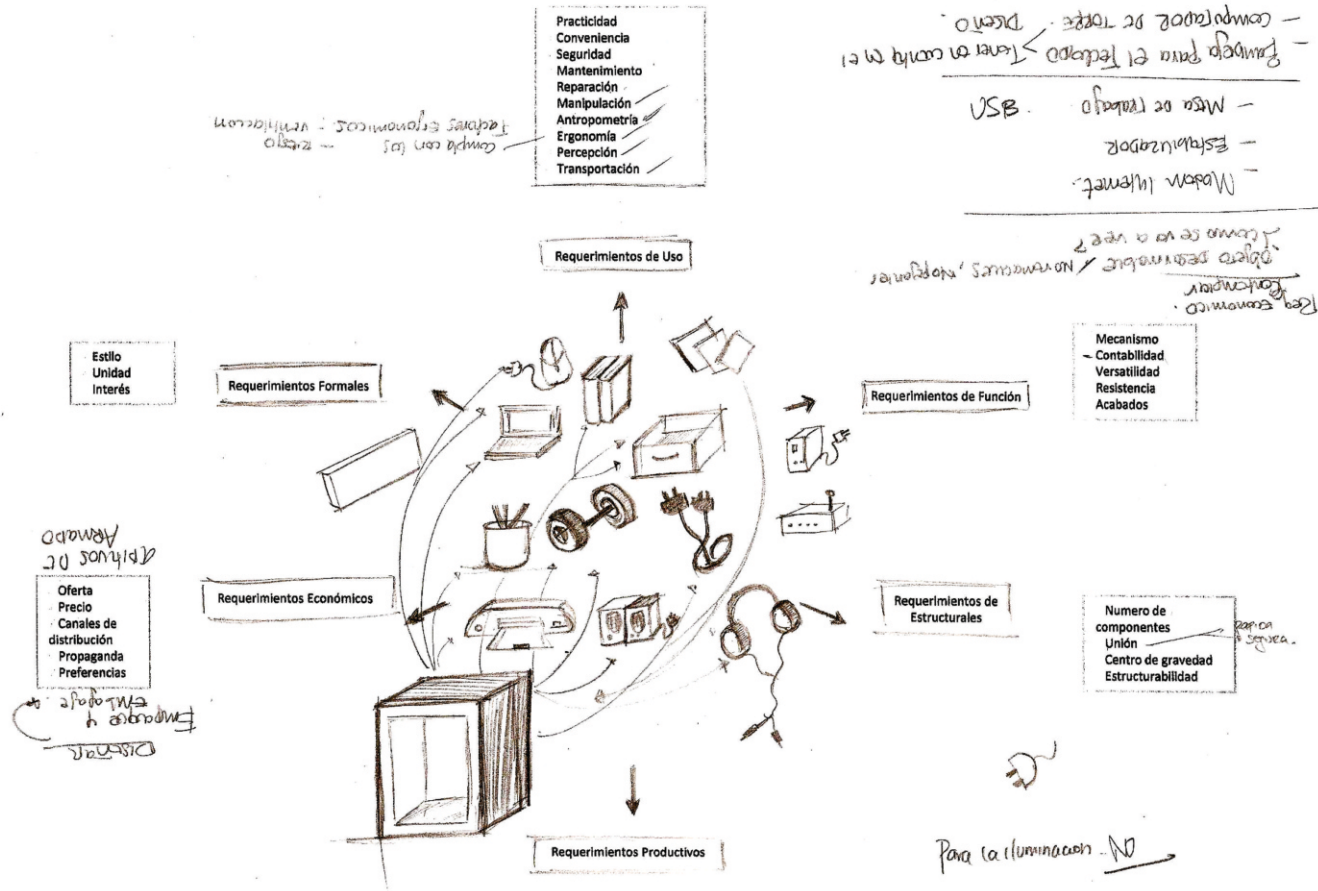 Practicidad
Conveniencia
Seguridad
Mantenimiento
Reparación
Manipulación
Antropometría
Ergonomía
Percepción
Transportación
cumpla con los - riesgo
Factores Ergonomicos : ventilacion
- COMPUTADOR DE TORRE. DISEÑO.
para el Teclado > Tener en cuenta en el
- Mesa de trabajo. USB
- Estabilizador
- Internet.
Objeto desarmable /
¿como se va a ver?
Req Economico.
Contemplar
Requerimientos de Uso
Estilo
Unidad
Interés
Requerimientos Formales
Requerimientos de Función
Mecanismo
- Contabilidad
Versatilidad
Resistencia
Acabados
DE
ARMADO
Oferta
Precio
Canales de
distribución
Propaganda
Preferencias
Empaque y
Embalaje.
DISEÑAR
Requerimientos Económicos
Requerimientos de
Estructurales
Numero de
componentes
Unión
Centro de gravedad
Estructurabilidad
rapida
segura.
Requerimientos Productivos
Para la iluminacion - NO